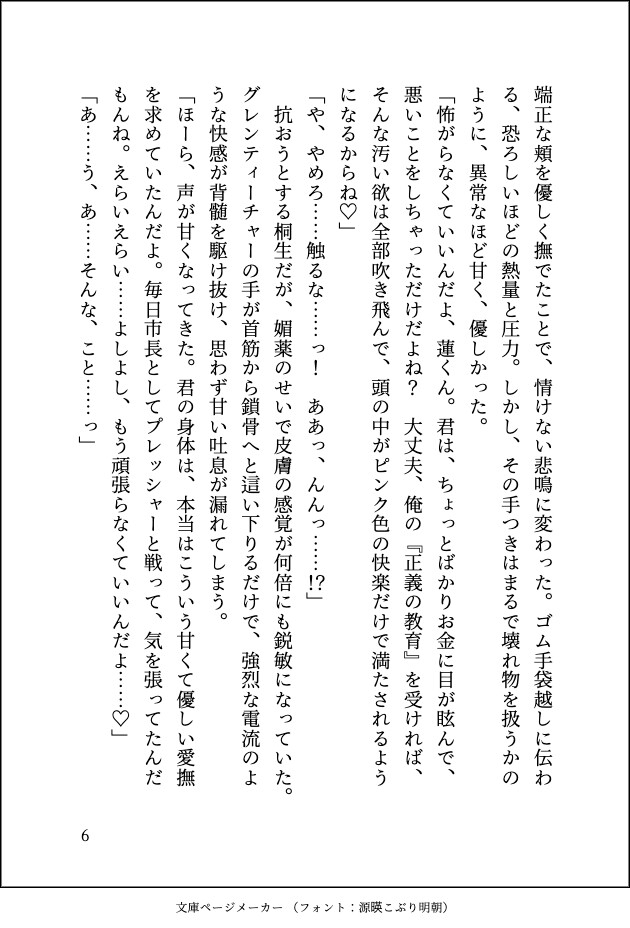 端正な頬を優しく撫でたことで、情けない悲鳴に変わった。ゴム手袋越しに伝わ
る、恐ろしいほどの熱量と圧力。しかし、その手つきはまるで壊れ物を扱うかの
ように、異常なほど甘く、優しかった。
「怖がらなくていいんだよ、蓮くん。君は、ちょっとばかりお金に目が眩んで、
悪いことをしちゃっただけだよね？　大丈夫、俺の『正義の教育』を受ければ、
そんな汚い欲は全部吹き飛んで、頭の中がピンク色の快楽だけで満たされるよう
になるからね♡」
「や、やめろ……触るな……っ！　ああっ、んんっ……!?」
　抗おうとする桐生だが、媚薬のせいで皮膚の感覚が何倍にも鋭敏になっていた。
グレンティーチャーの手が首筋から鎖骨へと這い下りるだけで、強烈な電流のよ
うな快感が背髄を駆け抜け、思わず甘い吐息が漏れてしまう。
「ほーら、声が甘くなってきた。君の身体は、本当はこういう甘くて優しい愛撫
を求めていたんだよ。毎日市長としてプレッシャーと戦って、気を張ってたんだ
もんね。えらいえらい……よしよし、もう頑張らなくていいんだよ……♡」
「あ……う、あ……そんな、こと……っ」
6
文庫ページメーカー （フォント：源暎こぶり明朝）